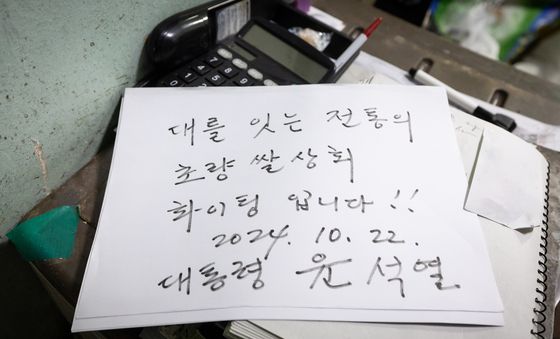 대를 잇는 전통의
초량 쌀상회
화이팅 입니다!!
2024. 10. 22.
대통령 윤석열